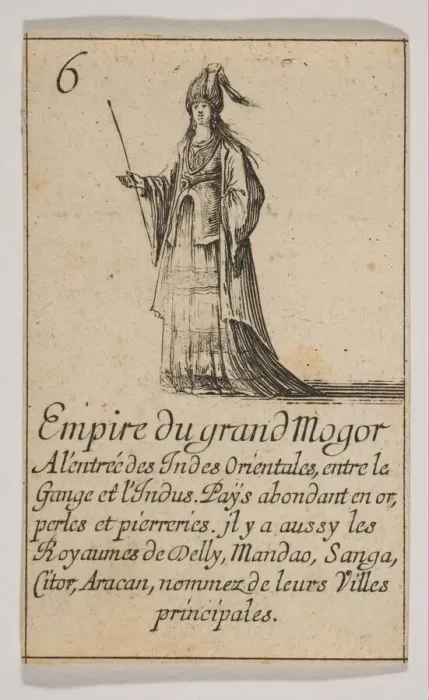 6
Empire du grand Mogor
A l'entrée des Indes Orientales, entre le
Gange et l'Indus. Païs abondant en or,
perles et pierreries. jl y a aussy les
Royaumes de Delly, Mandao, Sanga,
Citor, Aracan, nommez de leurs Villes
principales.